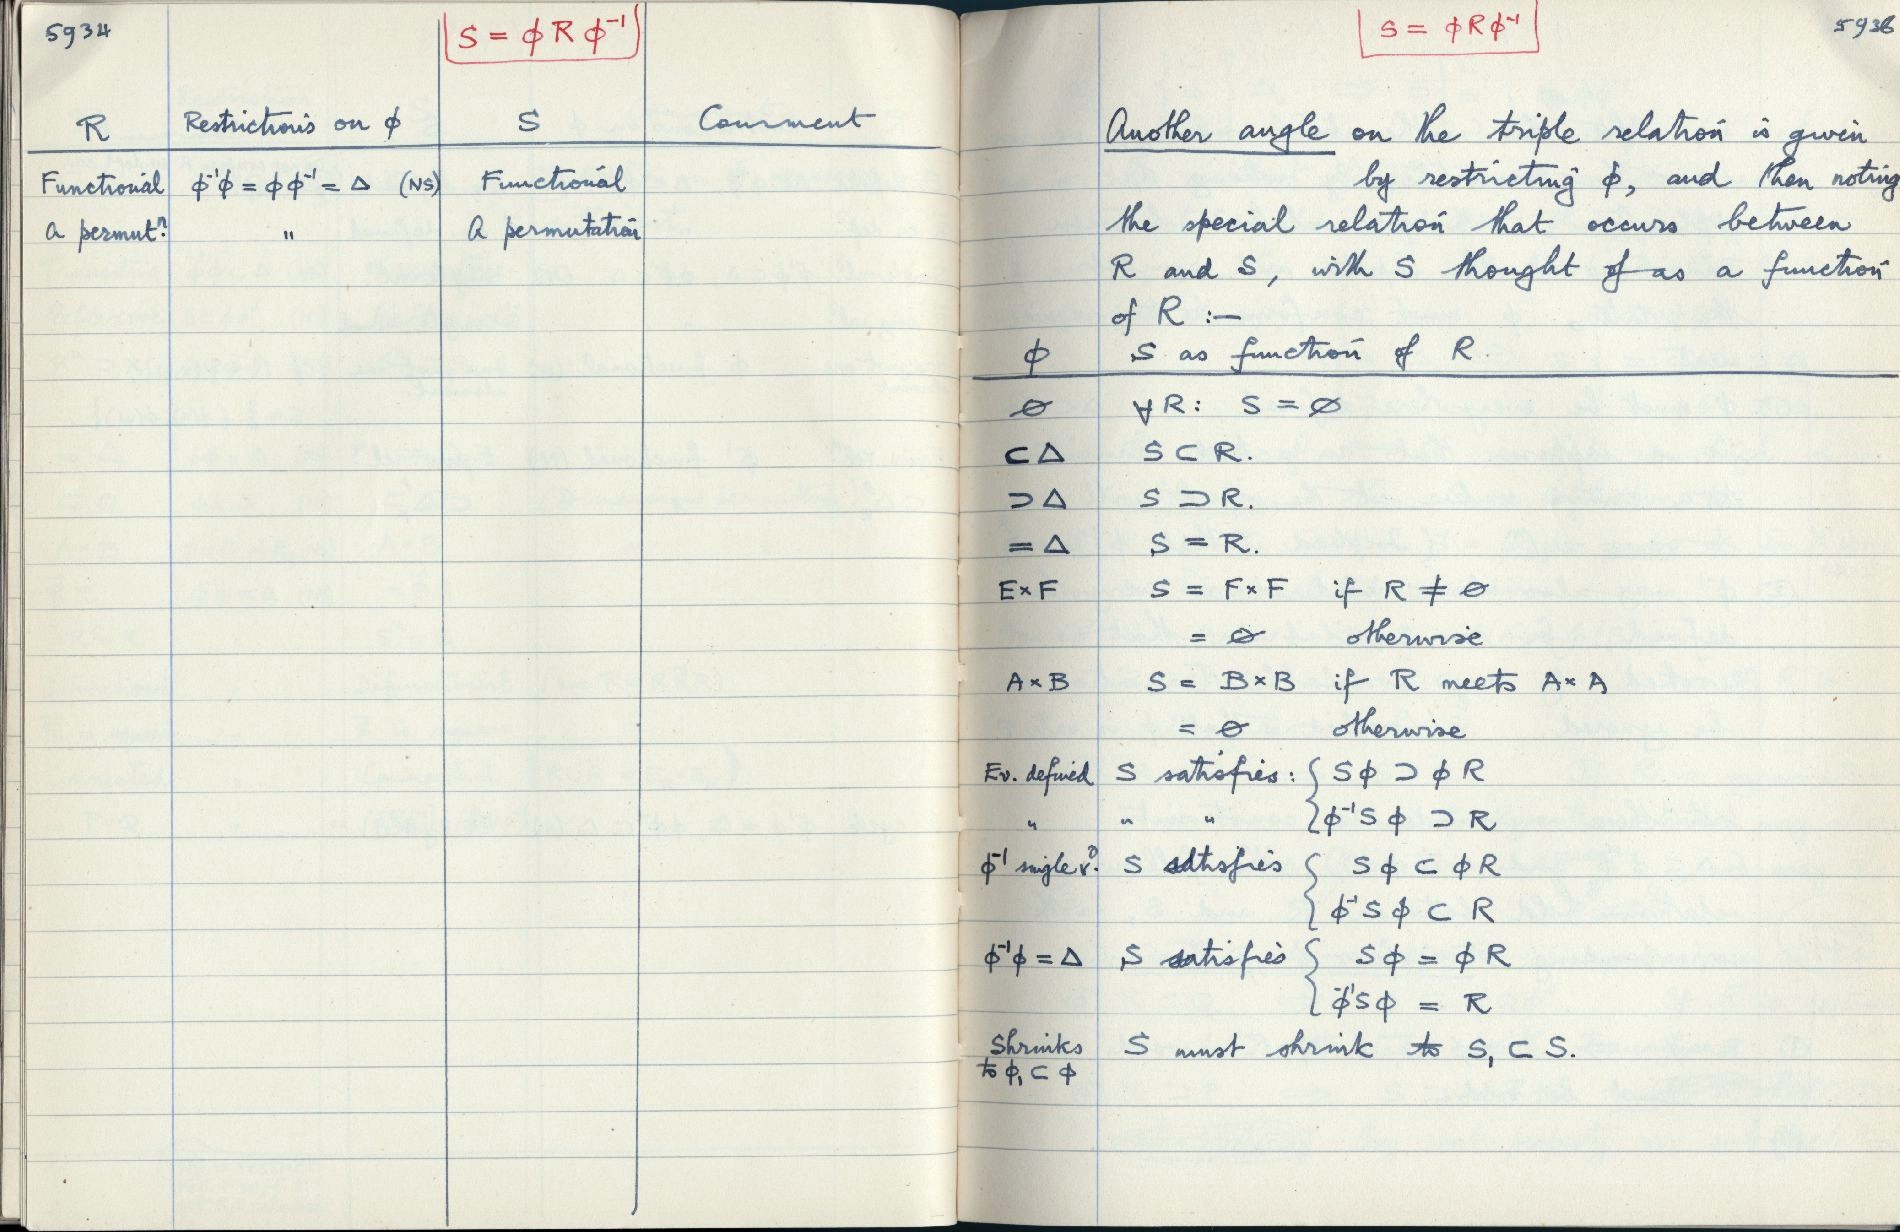 5934
S = ϕ R ϕ⁻¹
R Restrictions on ϕ S Comment
Functional ϕ⁻¹ϕ = ϕϕ⁻¹ = Δ (NS) Functional
A permutⁿ. " A permutation
S = ϕRϕ⁻¹
Another angle on the triple relation is given
by restricting ϕ, and then noting
the special relation that occurs between
R and S, with S thought of as a function
of R :—
ϕ S as function of R.
∅ ∀R: S = ∅
⊂Δ S ⊂ R.
⊃Δ S ⊃ R.
=Δ S = R.
E×F S = F×F if R ≠ ∅
= ∅ otherwise
A×B S = B×B if R meets A×A
= ∅ otherwise
Ev. defined S satisfies: { Sϕ ⊃ ϕR
" " " { ϕ⁻¹Sϕ ⊃ R
ϕ⁻¹ single v.ᵈ S satisfies { Sϕ ⊂ ϕR
ϕ⁻¹Sϕ ⊂ R
ϕ⁻¹ϕ = Δ S satisfies { Sϕ = ϕR
ϕ⁻¹Sϕ = R
Shrinks S must shrink to S₁ ⊂ S.
to ϕ₁ ⊂ ϕ